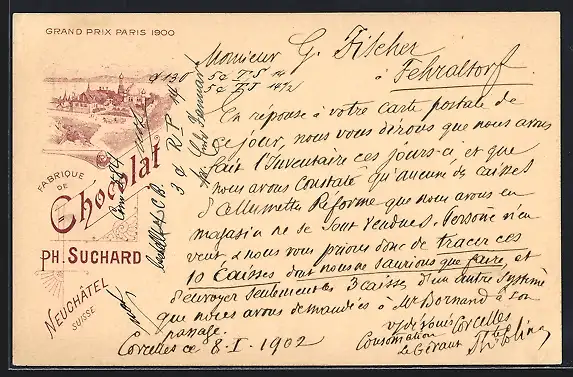 GRAND PRIX PARIS 1900
FABRIQUE
DE
Chocolat
PH. SUCHARD
NEUCHÂTEL
SUISSE
Monsieur G. Fischer
à Fehraltorf
En réponse à votre carte postale de
ce jour, nous vous dirons que nous avons
fait l'Inventaire ces jours-ci et que
nous avons constaté qu'aucune des caisses
d'allumettes Réforme que nous avons en
magasin ne se sont vendues. Personne n'en
veut, & nous vous prions donc de tracer ces
10 Caisses dont nous ne saurions que faire, et
d'envoyer seulement les 3 caisses d'un autre système
que nous avons demandées à Mr Bornand à son
passage.
Corcelles
Consommation
Le Gérant
Corcelles ce 8-I-1902